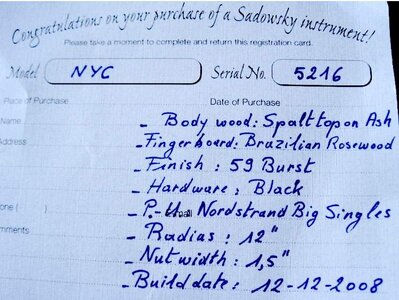 Congratulations on your purchase of a Sadowsky instrument!
Please take a moment to complete and return this registration card.
Model NYC Serial No. 5216
Place of Purchase Date of Purchase
Name
Address
one ( )
mments
- Body wood: Spalt top on Ash
- Fingerboard: Brazilian Rosewood
- Finish : 59 Burst
- Hardware : Black
- P.-U. Nordstrand Big Singles
- Radias : 12"
- Nut width : 1,5"
- Build date : 12-12-2008